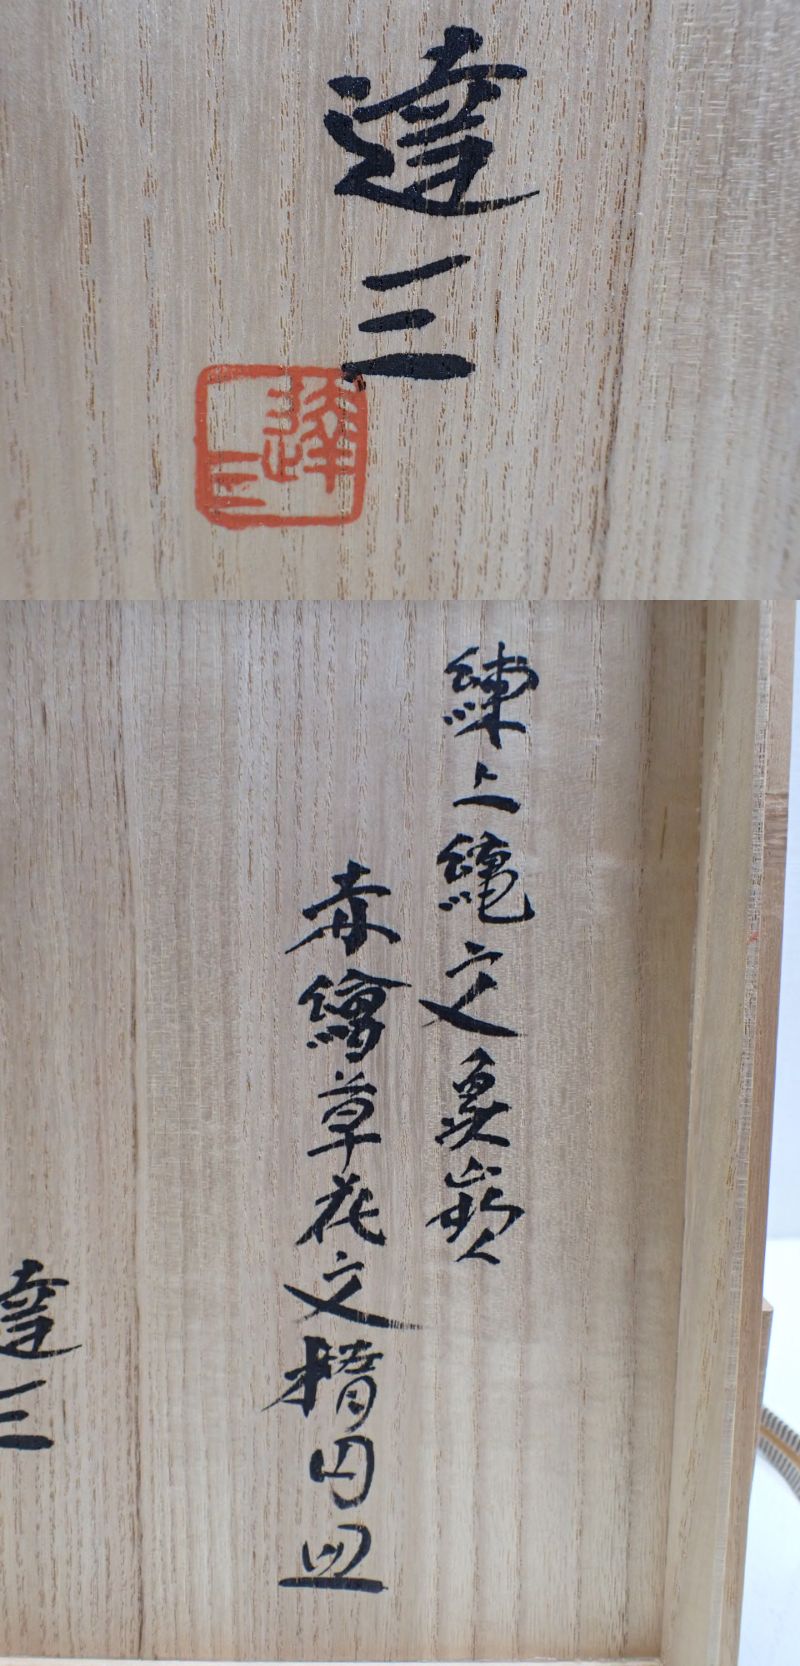 達三
達三
練上縄文象嵌
赤繪草花文楕円皿
達三